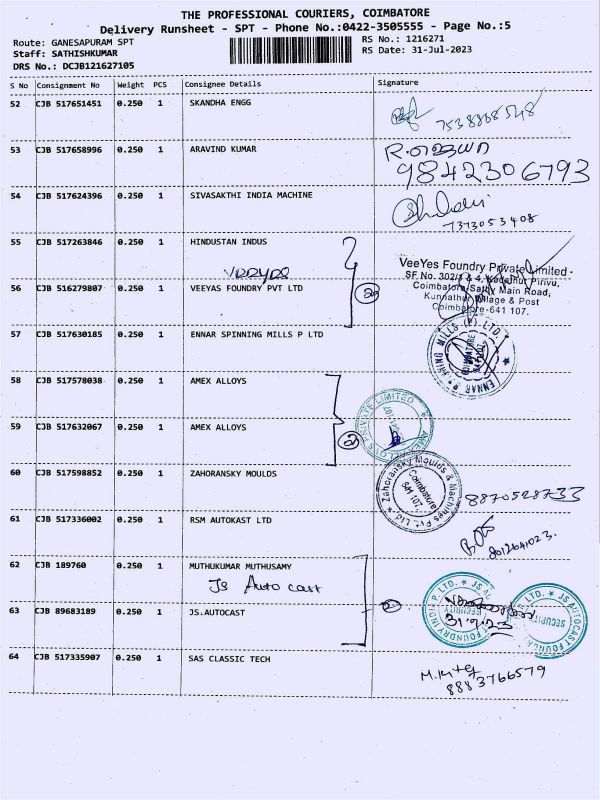 THE PROFESSIONAL COURIERS, COIMBATORE
Delivery Runsheet - SPT - Phone No.:0422-3505555 - Page No.:5
Route: GANESAPURAM SPT
RS No.: 1216271
Staff: SATHISHKUMAR
RS Date: 31-Jul-2023
DRS No.: DCJB121627105
S No Consignment No Weight PCS Consignee Details Signature
52 CJB 517651451 0.250 1 SKANDHA ENGG
7538868548
53 CJB 517658996 0.250 1 ARAVIND KUMAR
9842306793
54 CJB 517624396 0.250 1 SIVASAKTHI INDIA MACHINE
7373053408
55 CJB 517263846 0.250 1 HINDUSTAN INDUS
VeeYes Foundry Private Limited
SF No. 302/3 & 4, Kadathur Pirivu,
56 CJB 516279807 0.250 1 VEEYAS FOUNDRY PVT LTD 2
Coimbatore Sathy Main Road,
Kunnathur Village & Post
Coimbatore-641 107.
57 CJB 517630185 0.250 1 ENNAR SPINNING MILLS P LTD
ENNAR SPINNING MILLS (P) LTD.
COIMBATORE
58 CJB 517578038 0.250 1 AMEX ALLOYS
AMEX ALLOYS PRIVATE LIMITED
59 CJB 517632067 0.250 1 AMEX ALLOYS
2
60 CJB 517598852 0.250 1 ZAHORANSKY MOULDS
Zahoransky Moulds & Machines Pvt. Ltd
Coimbatore
641 107.
8870528733
61 CJB 517336002 0.250 1 RSM AUTOKAST LTD
8012641023.
62 CJB 189760 0.250 1 MUTHUKUMAR MUTHUSAMY
JS Auto cast
63 CJB 89683189 0.250 1 JS.AUTOCAST 2
JS AUTOCAST FOUNDRY INDIA P. LTD.
SECURITY
31.7.23
JS AUTOCAST FOUN
LTD.
SECURITY
64 CJB 517335907 0.250 1 SAS CLASSIC TECH
8883766579